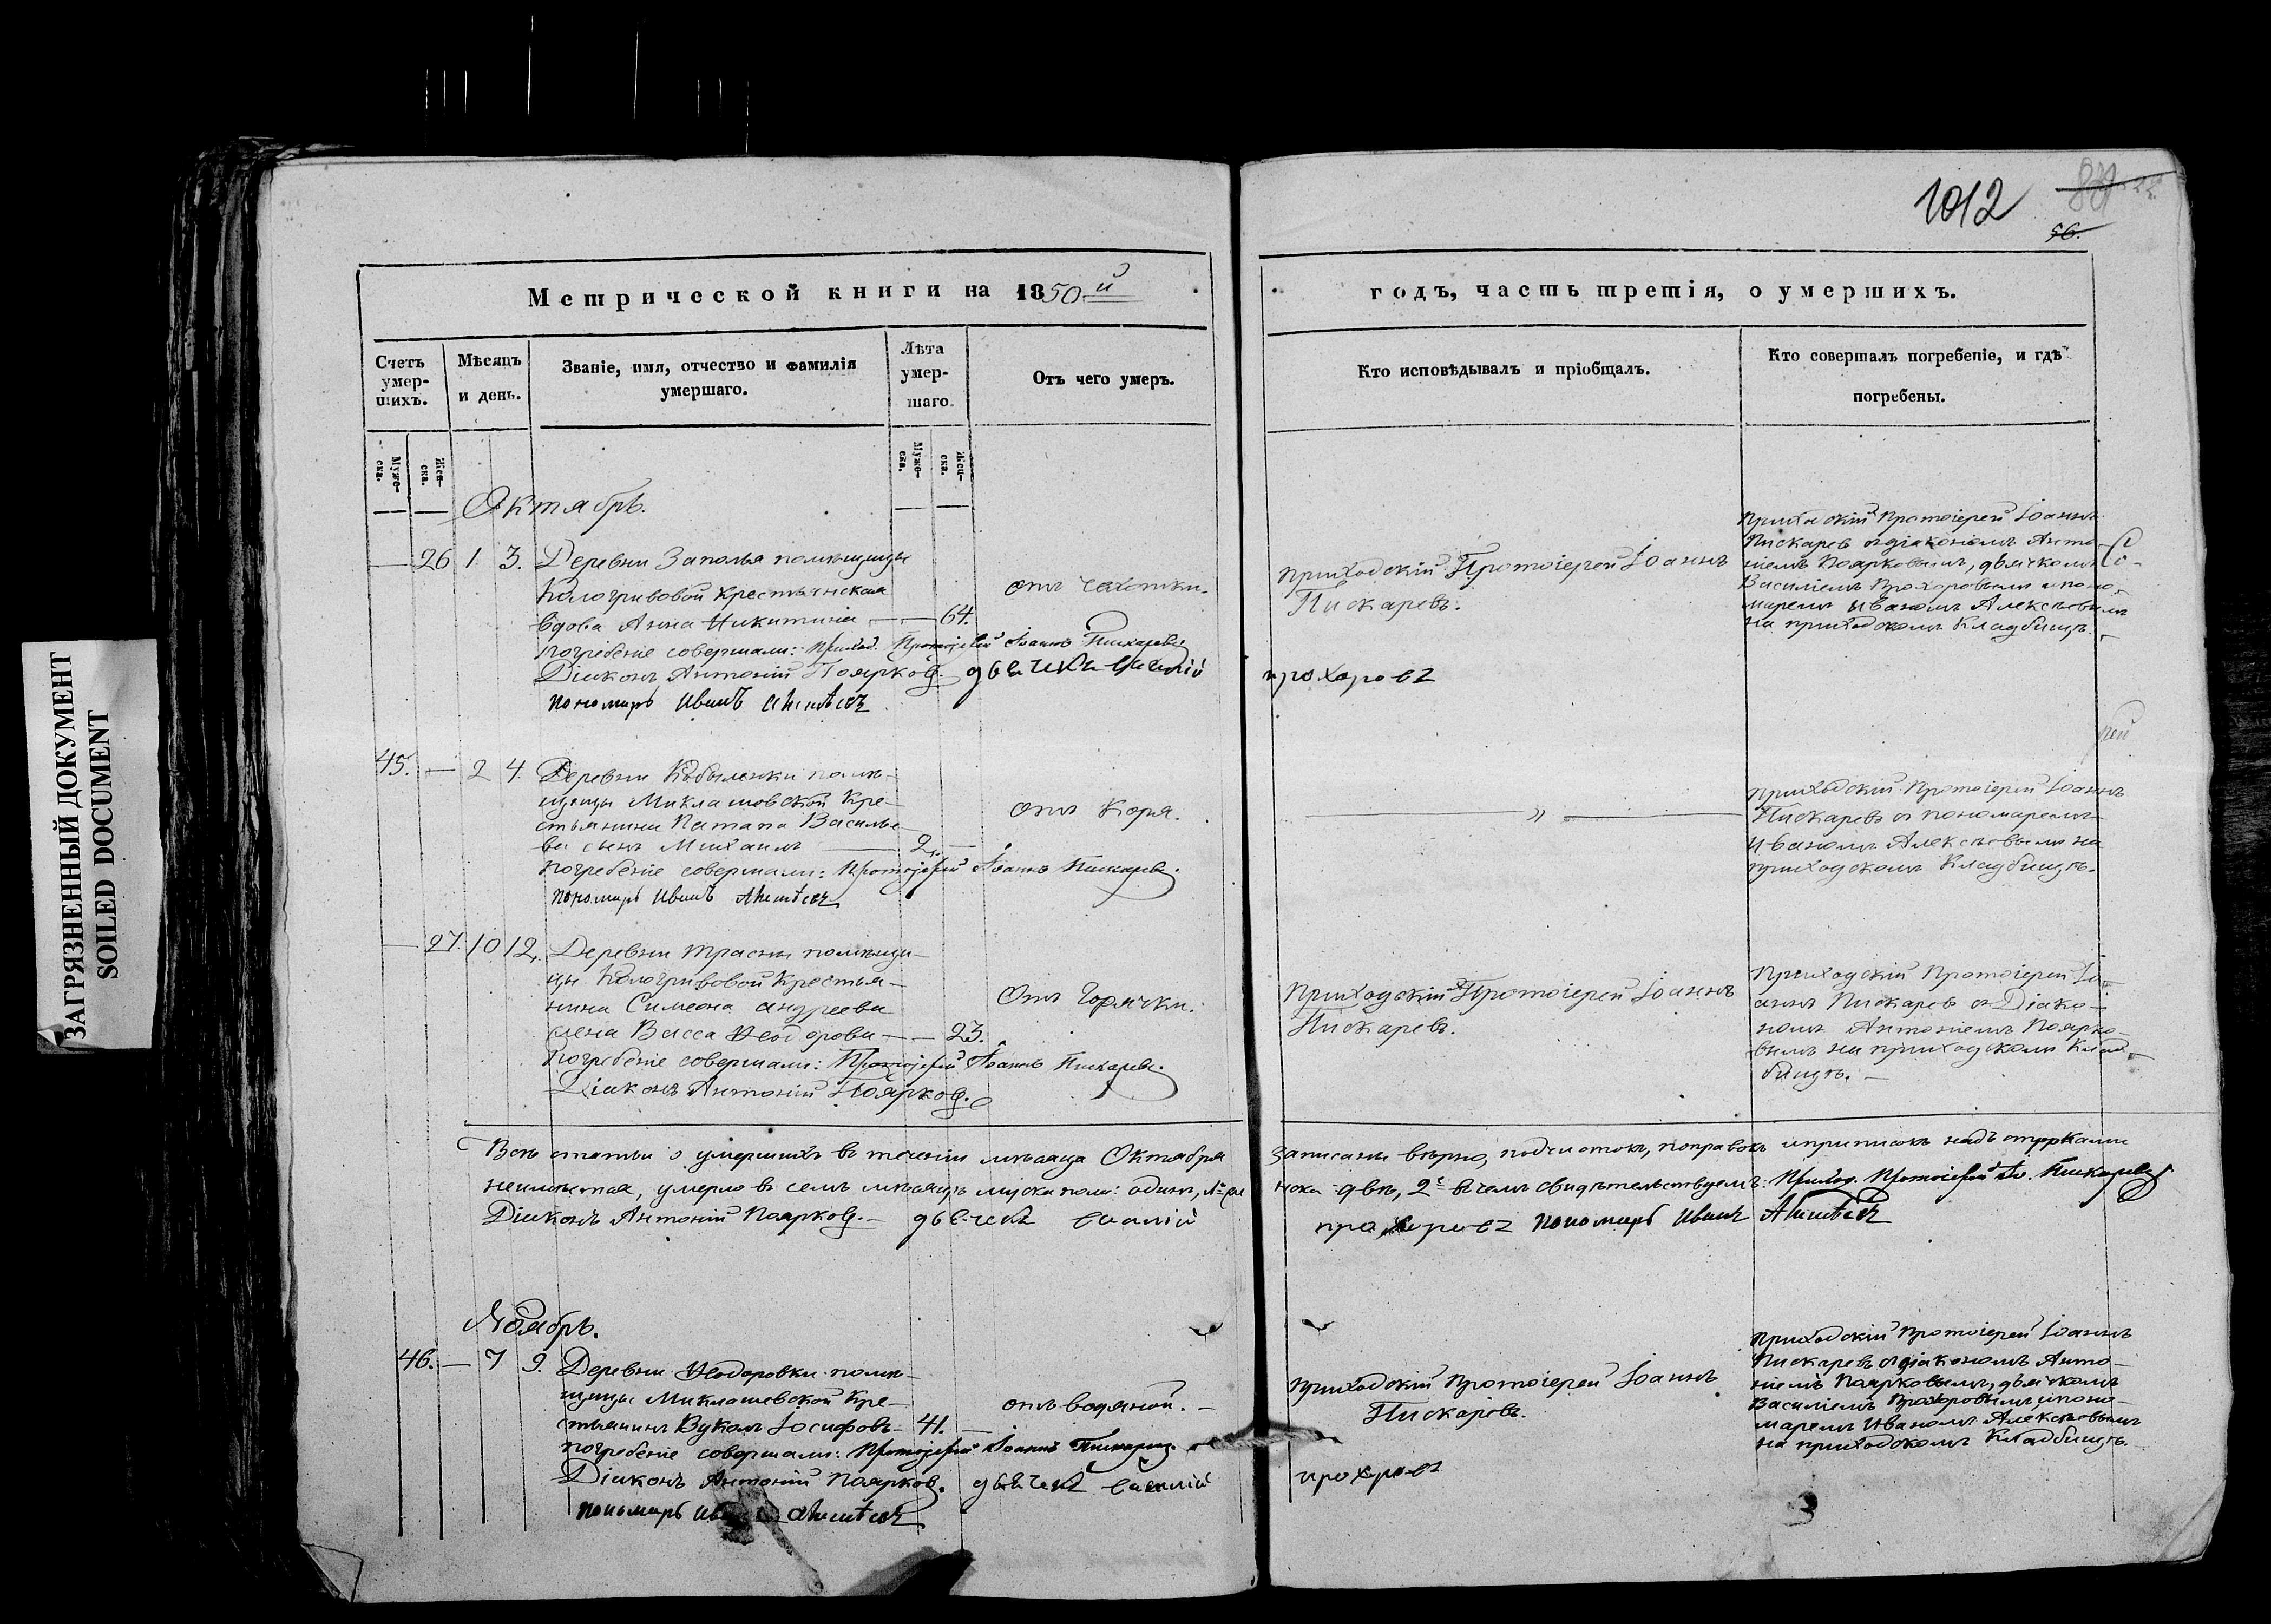 ЗАГРЯЗНЕННЫЙ ДОКУМЕНТ
SOILED DOCUMENT
1012
56.
Метрической книги на 1850й
годъ, часть третія, о умершихъ.
Счетъ умер-шихъ.
Мѣсяцъ и день.
Званіе, имя, отчество и фамилія умершаго.
Лѣта умер-шаго.
Отъ чего умеръ.
Кто исповѣдывалъ и пріобщалъ.
Кто совершалъ погребеніе, и гдѣ погребены.
Муже-ска.
Жен-ска.
Муже-ска.
Жен-ска.
Октябрь.
— 26 1 3. Деревни Заполья помѣщицы
Кологривовой крестьянская
вдова Анна Никитина — — 64.
отъ чахотки.
Приходскій Протоіерей Іоаннъ
Пискаревъ.
Приходскій Протоіерей Іоаннъ
Пискаревъ съ діакономъ Анто-
ніемъ Поярковымъ, дьячкомъ
Василіемъ Прохоровымъ и поно-
маремъ Иваномъ Алексѣевымъ
на приходскомъ кладбищѣ.
погребеніе совершали: Приход. Протоіерей Іоаннъ Пискаревъ
Діаконъ Антоній Поярковъ. дьячекъ василій прохоровъ
пономарь Иванъ Алексѣевъ
45. — 2 4. Деревни помѣ-
щицы Миклашовской кре-
стьянина Патапа Василье-
ва сынъ Михаилъ — 2. —
отъ коря.
— „ —
Приходскій Протоіерей Іоаннъ
Пискаревъ съ пономаремъ
Иваномъ Алексѣевымъ на
приходскомъ кладбищѣ.
погребеніе совершали: Протоіерей Іоаннъ Пискаревъ.
пономарь Иванъ Алексѣевъ
— 27. 10 12. Деревни помѣщи-
цы Кологривовой крестья-
нина Симеона Андреева
жена Васса Ѳеодорова — — 23.
отъ горячки.
Приходскій Протоіерей Іоаннъ
Пискаревъ.
Приходскій Протоіерей Іо-
аннъ Пискаревъ съ Діако-
номъ Антоніемъ Поярко-
вымъ на приходскомъ клад-
бищѣ. —
Погребеніе совершали: Протоіерей Іоаннъ Пискаревъ.
Діаконъ Антоній Поярковъ.
Всѣ статьи о умершихъ въ теченіи мѣсяца Октября записаны вѣрно, подчистокъ, поправокъ и приписокъ надъ строками
неимѣется, умерло въ семъ мѣсяцѣ муска пола: одинъ, двѣ, 2е въ чемъ свидѣтельствуемъ: Приход. Протоіерей Іо. Пискаревъ
Діаконъ Антоній Поярковъ. — дьячекъ василій прохоровъ пономарь Иванъ Алексѣевъ
Ноябрь.
46. — 7 9. Деревни Ѳеодоровки помѣ-
щицы Миклашевской кре-
стьянинъ Вуколъ Іосифовъ — 41. —
отъ водяной. —
Приходскій Протоіерей Іоаннъ
Пискаревъ.
Приходскій Протоіерей Іоаннъ
Пискаревъ съ діакономъ Анто-
ніемъ Поярковымъ, дьячкомъ
Василіемъ Прохоровымъ и поно-
маремъ Иваномъ Алексѣевымъ
на приходскомъ кладбищѣ.
погребеніе совершали: Протоіерей Іоаннъ Пискаревъ.
Діаконъ Антоній Поярковъ. дьячекъ василій прохоровъ
пономарь Алексѣевъ